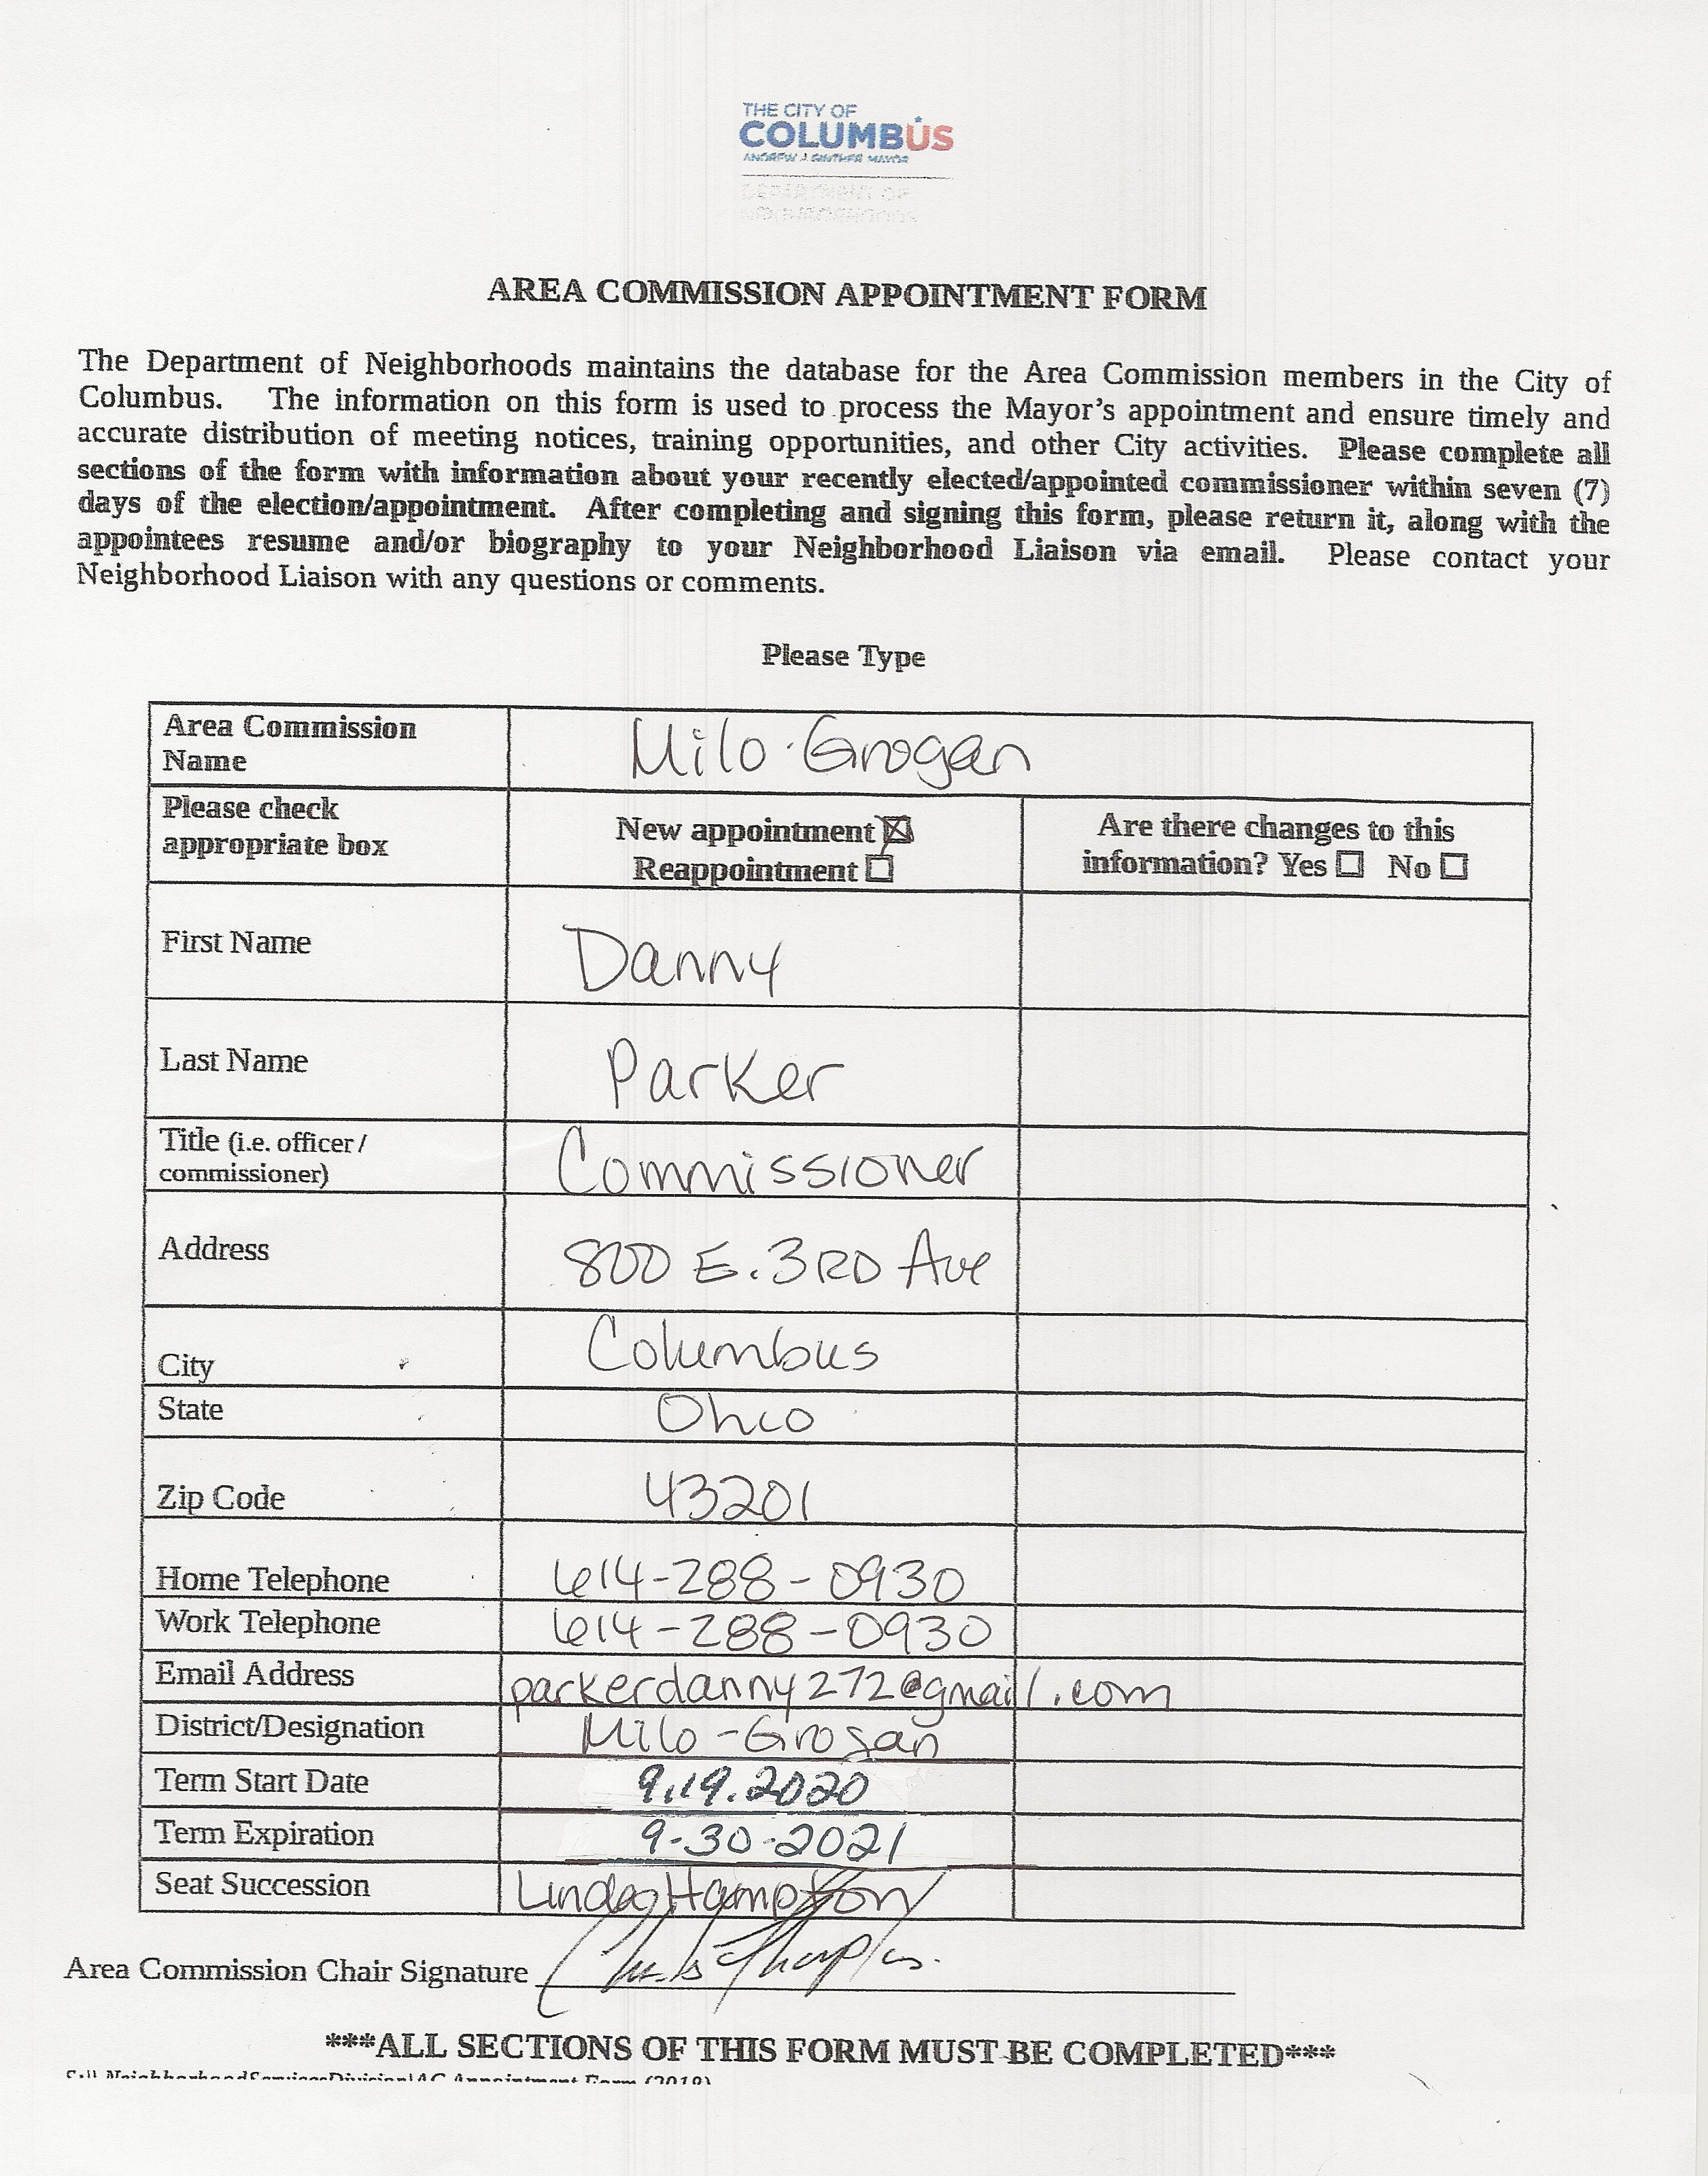 THE CITY OF
COLUMBUS
ANDREW J. GINTHER MAYOR
DEPARTMENT OF
NEIGHBORHOODS
AREA COMMISSION APPOINTMENT FORM
The Department of Neighborhoods maintains the database for the Area Commission members in the City of
Columbus. The information on this form is used to process the Mayor's appointment and ensure timely and
accurate distribution of meeting notices, training opportunities, and other City activities. Please complete all
sections of the form with information about your recently elected/appointed commissioner within seven (7)
days of the election/appointment. After completing and signing this form, please return it, along with the
appointees resume and/or biography to your Neighborhood Liaison via email. Please contact your
Neighborhood Liaison with any questions or comments.
Please Type
Area Commission
Name
Milo-Grogan
Please check
appropriate box
New appointment ☒
Reappointment ☐
Are there changes to this
information? Yes ☐ No ☐
First Name
Danny
Last Name
Parker
Title (i.e. officer /
commissioner)
Commissioner
Address
800 E. 3RD Ave
City
Columbus
State
Ohio
Zip Code
43201
Home Telephone
614-288-0930
Work Telephone
614-288-0930
Email Address
parkerdanny272@gmail.com
District/Designation
Milo-Grogan
Term Start Date
9.19.2020
Term Expiration
9-30-2021
Seat Succession
Linda Hampton
Area Commission Chair Signature
***ALL SECTIONS OF THIS FORM MUST BE COMPLETED***
NeighborhoodServicesDivision\AC Appointment Form (2018)